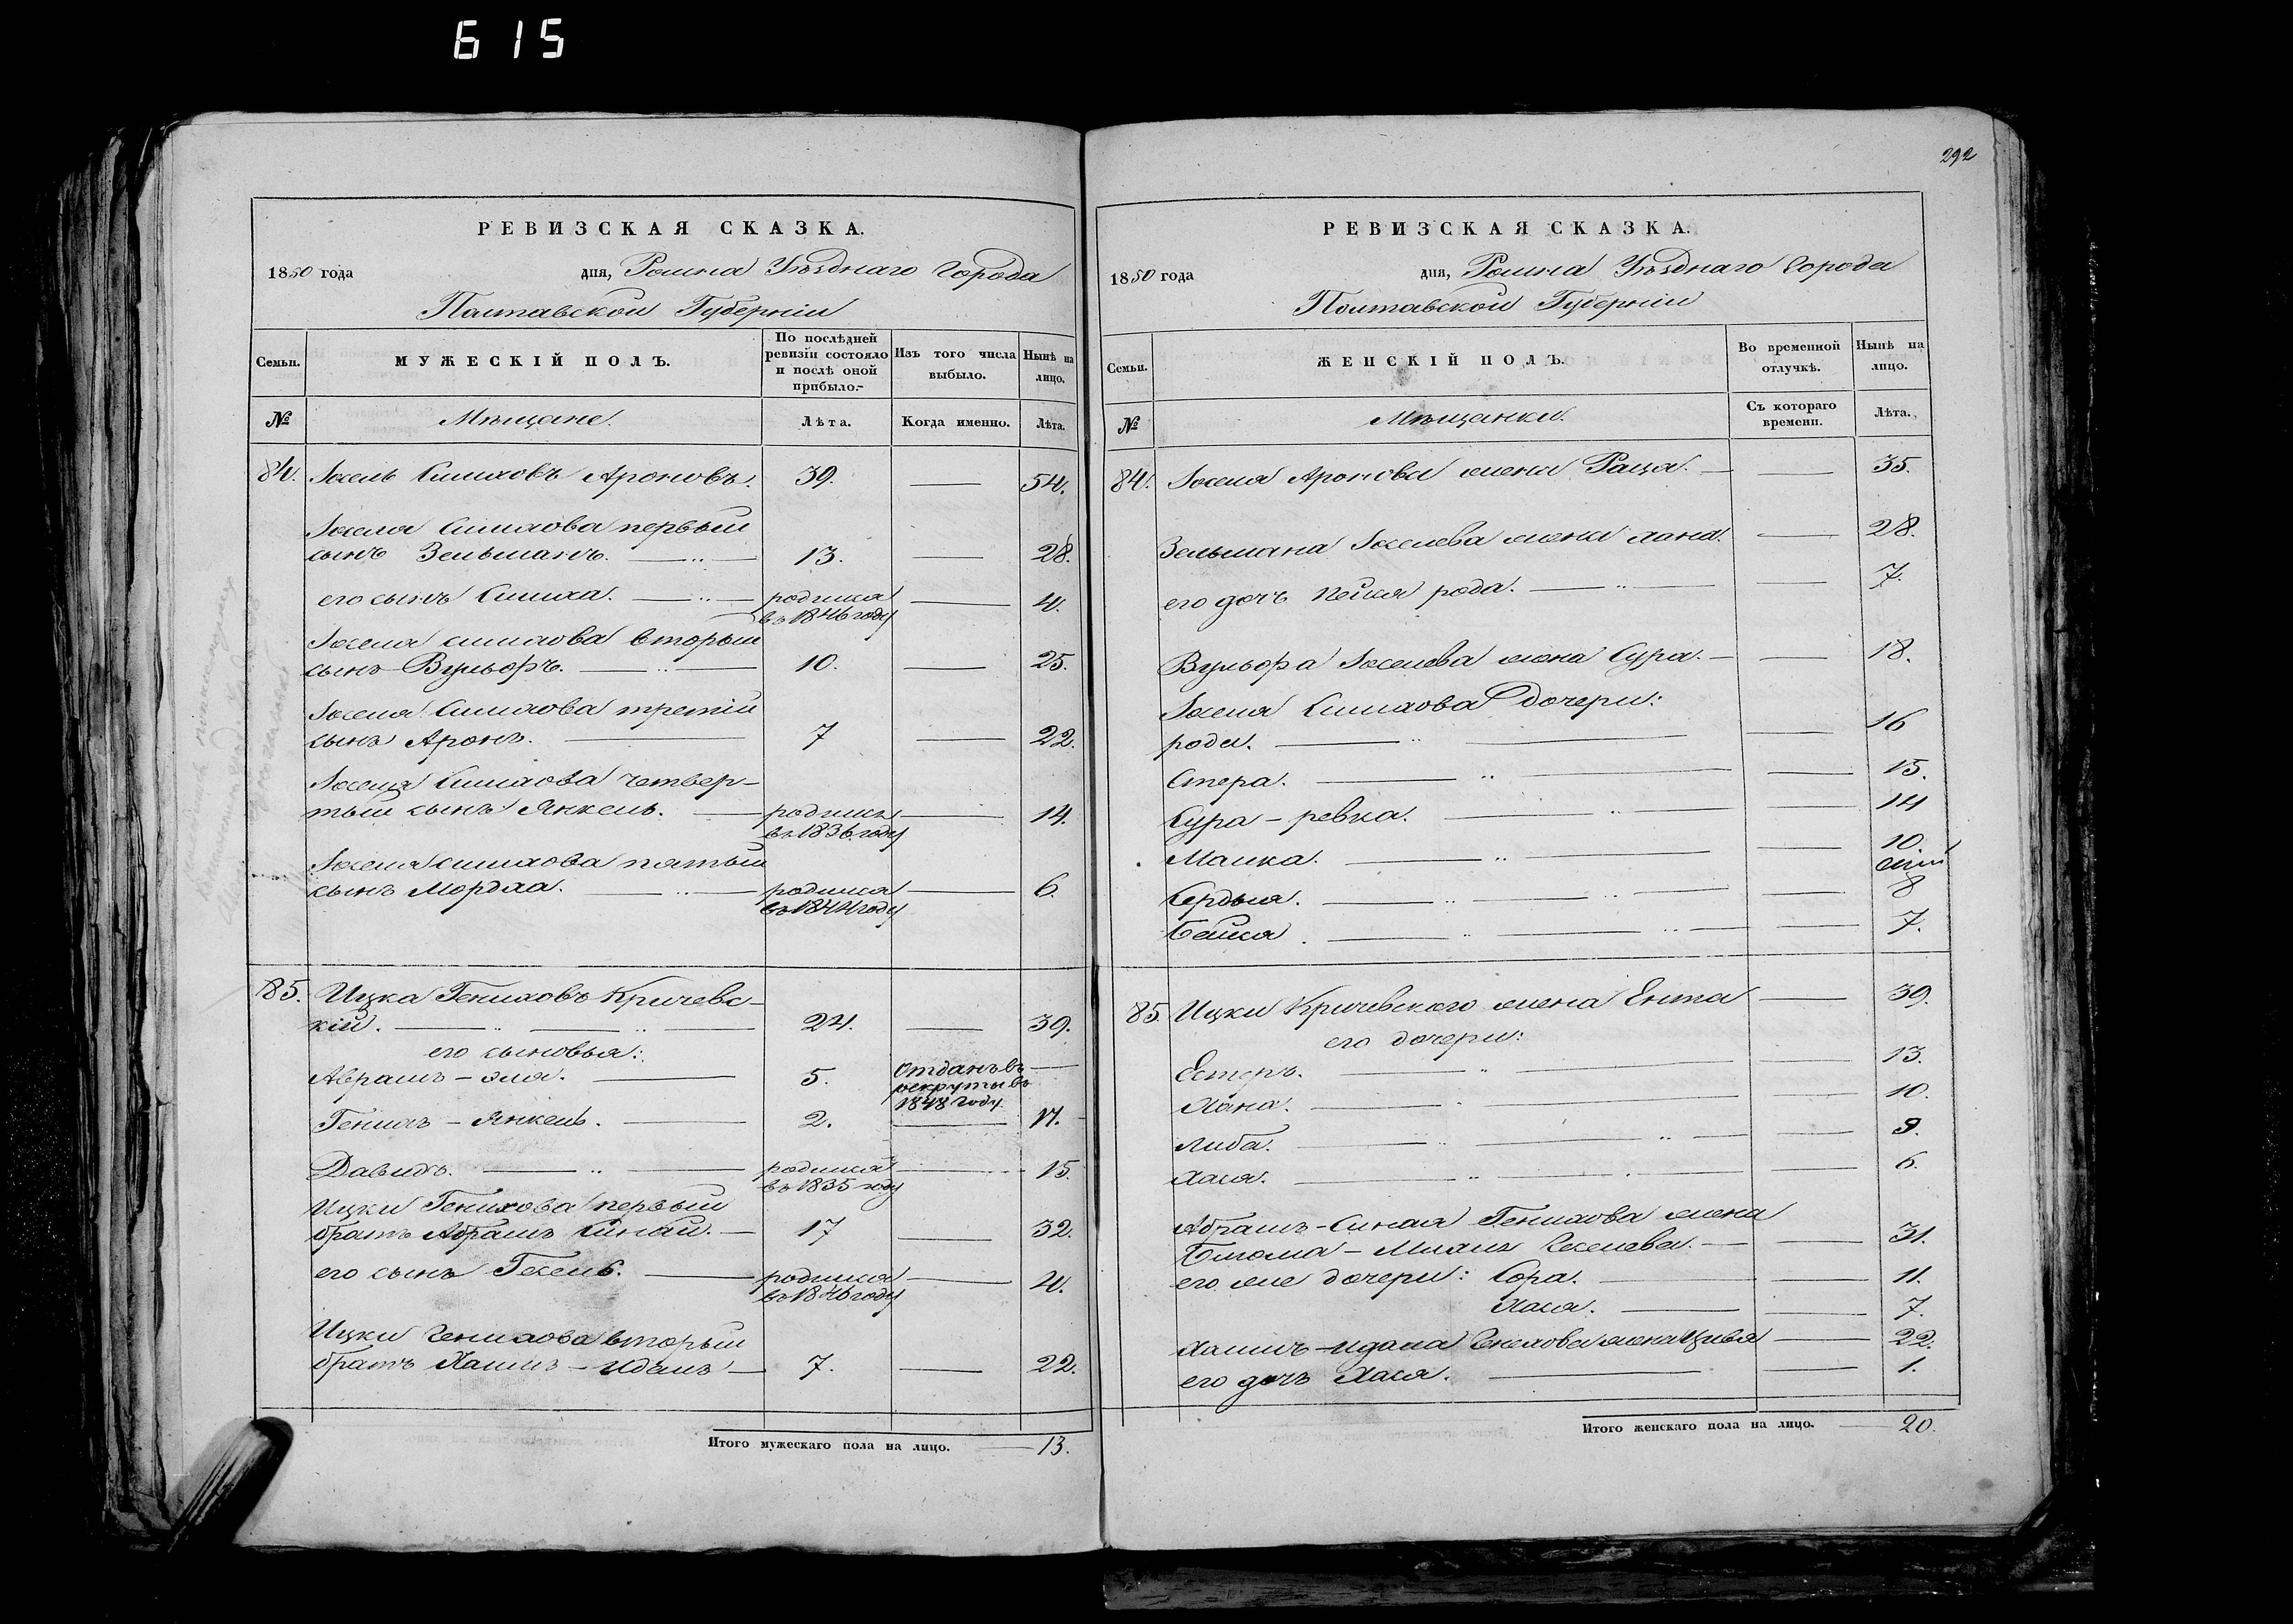 615
292
РЕВИЗСКАЯ СКАЗКА.
1850 года дня, Ромна Уѣзднаго Города
Полтавской Губерніи
Семьи. МУЖЕСКІЙ ПОЛЪ. По послѣдней ревизіи состояло и послѣ оной прибыло. Изъ того числа выбыло. Нынѣ на лицо.
№ Мѣщане. Лѣта. Когда именно. Лѣта.
84. Іосель Симховъ Ароновъ. 39. 54.
Іоселя Симхова первый
сынъ Зельманъ. 13. 28.
его сынъ Симха. родился 4.
въ 1846 году
Іоселя Симхова вторый
сынъ Вульфъ. 10. 25.
Іоселя Симхова третій
сынъ Аронъ. 7 22.
Іоселя Симхова четвер-
тый сынъ Янкель. родился 14.
въ 1836 году
Іоселя Симхова пятый
сынъ Мордха. родился 6.
въ 1844 году
85. Ицка Гениховъ Кричевс-
кій. 24. 39.
его сыновья:
Абрамъ-Эля. 5. Отданъ въ
рекруты въ
1848 году.
Генихъ-Янкель. 2. 17.
Давидъ. родился 15.
въ 1835 году
Ицки Генихова первый
братъ Абрамъ Синай. 17 32.
его сынъ Гесель. родился 4.
въ 1846 году
Ицки Генихова вторый
братъ Хаимъ-Идамъ 7. 22.
Итого мужескаго пола на лицо. 13.
РЕВИЗСКАЯ СКАЗКА.
1850 года дня, Ромна Уѣзднаго Города
Полтавской Губерніи
Семьи. ЖЕНСКІЙ ПОЛЪ. Во временной отлучкѣ. Нынѣ на лицо.
№ Мѣщанки. Съ котораго времени. Лѣта.
84. Іоселя Аронова жена Раша. 35.
Зельмана Іоселева жена Хана. 28.
его дочь Пейся рода. 7.
Вульфа Іоселева жена Сура. 18.
Іоселя Симхова дочери:
рода. 16
Стера. 15.
Сура-ревка. 14
Малка. 10.
Сердыя. 8
Бейля. 7.
85. Ицки Кричевского жена Ента 39.
его дочери:
Естеръ. 13.
Хана. 10.
Либа. 9.
Хася. 6.
Абрамъ-Синая Генихова жена
Блюма 31.
его же дочери: Сора. 11.
Хася. 7.
Хаимъ-Идама Генихова жена Цивя 22.
его дочь Хася. 1.
Итого женскаго пола на лицо. 20.